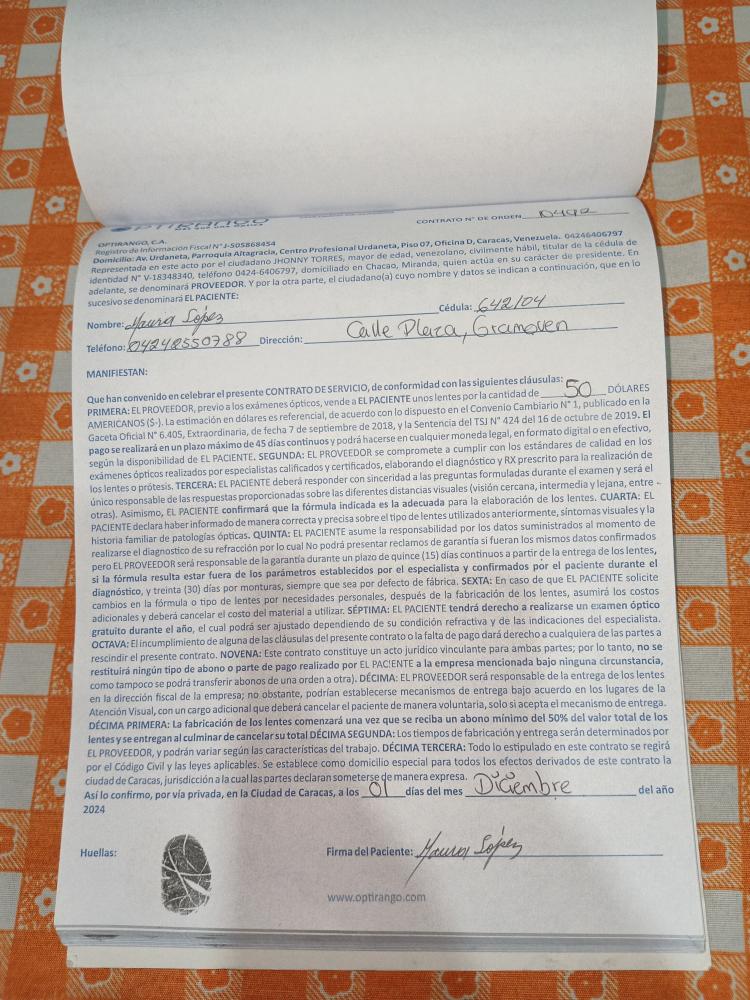 OPTIRANGO
CONTRATO N° DE ORDEN 0492
OPTIRANGO, C.A.
Registro de Información Fiscal N° J-505868454
Domicilio: Av. Urdaneta, Parroquia Altagracia, Centro Profesional Urdaneta, Piso 07, Oficina D, Caracas, Venezuela. 04246406797
Representada en este acto por el ciudadano JHONNY TORRES, mayor de edad, venezolano, civilmente hábil, titular de la cédula de
identidad N° V-18348340, teléfono 0424-6406797, domiciliado en Chacao, Miranda, quien actúa en su carácter de presidente. En
adelante, se denominará PROVEEDOR. Y por la otra parte, el ciudadano(a) cuyo nombre y datos se indican a continuación, que en lo
sucesivo se denominará EL PACIENTE:
Nombre: Maura López Cédula: 642104
Teléfono: 04242550788 Dirección: Calle Plaza, Gramoven
MANIFIESTAN:
Que han convenido en celebrar el presente CONTRATO DE SERVICIO, de conformidad con las siguientes cláusulas:
PRIMERA: EL PROVEEDOR, previo a los exámenes ópticos, vende a EL PACIENTE unos lentes por la cantidad de 50 DÓLARES
AMERICANOS ($-). La estimación en dólares es referencial, de acuerdo con lo dispuesto en el Convenio Cambiario N° 1, publicado en la
Gaceta Oficial N° 6.405, Extraordinaria, de fecha 7 de septiembre de 2018, y la Sentencia del TSJ N° 424 del 16 de octubre de 2019. El
pago se realizará en un plazo máximo de 45 días continuos y podrá hacerse en cualquier moneda legal, en formato digital o en efectivo,
según la disponibilidad de EL PACIENTE. SEGUNDA: EL PROVEEDOR se compromete a cumplir con los estándares de calidad en los
exámenes ópticos realizados por especialistas calificados y certificados, elaborando el diagnóstico y RX prescrito para la realización de
los lentes o prótesis. TERCERA: EL PACIENTE deberá responder con sinceridad a las preguntas formuladas durante el examen y será el
único responsable de las respuestas proporcionadas sobre las diferentes distancias visuales (visión cercana, intermedia y lejana, entre
otras). Asimismo, EL PACIENTE confirmará que la fórmula indicada es la adecuada para la elaboración de los lentes. CUARTA: EL
PACIENTE declara haber informado de manera correcta y precisa sobre el tipo de lentes utilizados anteriormente, síntomas visuales y la
historia familiar de patologías ópticas. QUINTA: EL PACIENTE asume la responsabilidad por los datos suministrados al momento de
realizarse el diagnostico de su refracción por lo cual No podrá presentar reclamos de garantía si fueran los mismos datos confirmados
pero EL PROVEEDOR será responsable de la garantía durante un plazo de quince (15) días continuos a partir de la entrega de los lentes,
si la fórmula resulta estar fuera de los parámetros establecidos por el especialista y confirmados por el paciente durante el
diagnóstico, y treinta (30) días por monturas, siempre que sea por defecto de fábrica. SEXTA: En caso de que EL PACIENTE solicite
cambios en la fórmula o tipo de lentes por necesidades personales, después de la fabricación de los lentes, asumirá los costos
adicionales y deberá cancelar el costo del material a utilizar. SÉPTIMA: EL PACIENTE tendrá derecho a realizarse un examen óptico
gratuito durante el año, el cual podrá ser ajustado dependiendo de su condición refractiva y de las indicaciones del especialista.
OCTAVA: El incumplimiento de alguna de las cláusulas del presente contrato o la falta de pago dará derecho a cualquiera de las partes a
rescindir el presente contrato. NOVENA: Este contrato constituye un acto jurídico vinculante para ambas partes; por lo tanto, no se
restituirá ningún tipo de abono o parte de pago realizado por EL PACIENTE a la empresa mencionada bajo ninguna circunstancia,
como tampoco se podrá transferir abonos de una orden a otra). DÉCIMA: EL PROVEEDOR será responsable de la entrega de los lentes
en la dirección fiscal de la empresa; no obstante, podrían establecerse mecanismos de entrega bajo acuerdo en los lugares de la
Atención Visual, con un cargo adicional que deberá cancelar el paciente de manera voluntaria, solo si acepta el mecanismo de entrega.
DÉCIMA PRIMERA: La fabricación de los lentes comenzará una vez que se reciba un abono mínimo del 50% del valor total de los
lentes y se entregan al culminar de cancelar su total DÉCIMA SEGUNDA: Los tiempos de fabricación y entrega serán determinados por
EL PROVEEDOR, y podrán variar según las características del trabajo. DÉCIMA TERCERA: Todo lo estipulado en este contrato se regirá
por el Código Civil y las leyes aplicables. Se establece como domicilio especial para todos los efectos derivados de este contrato la
ciudad de Caracas, jurisdicción a la cual las partes declaran someterse de manera expresa.
Así lo confirmo, por vía privada, en la Ciudad de Caracas, a los 01 días del mes Diciembre del año
2024
Huellas:
Firma del Paciente: Maura López
www.optirango.com